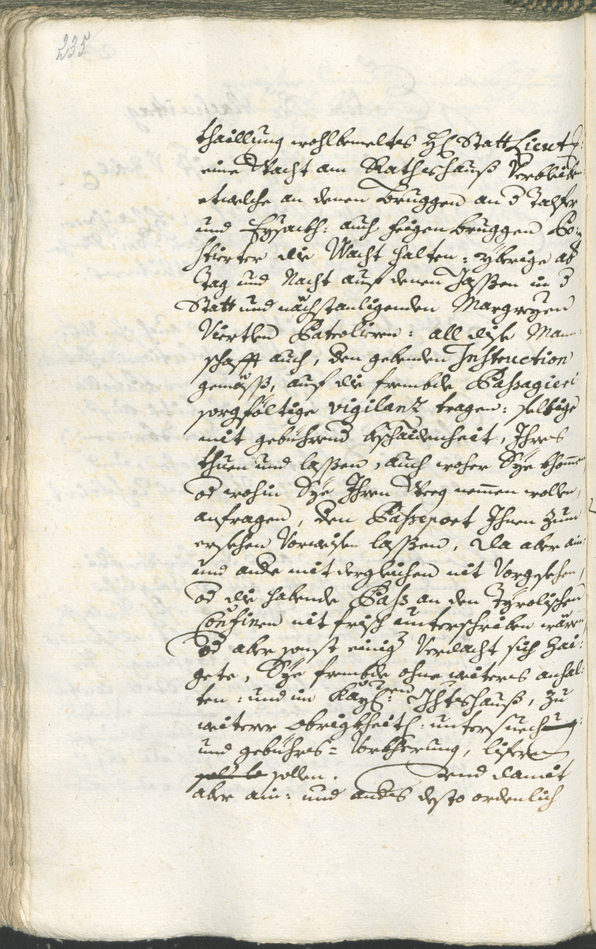 235
thaillung wohlbemeltes H: Statt Lieut:
eine Wacht am Rathshauß Verbleiben
etwelche an denen Bruggen an d Talfer
und Eysackh: auch feigenbruggen Po-
stierter die Wacht halten: ybrige ab
tag und Nacht auf denen Gaßen in d
Statt und nächst anligenden
Viertlen Patroliren: all dise Mann-
schafft auch, den gebenden Instruction
gemäß, auf die frembde Passagieri
sorgfältige vigilanz tragen: selbige
mit gebührend bschaidenheit, Ihres
thuen und laßen, auch woher Sye khomen
od wohin Sye Ihren Weeg nemmen wollen,
anfragen, den Passeport Ihnen zum
ersehen Vorweisen laßen, da aber ain:
und ande mit dergleichen nit Vorgesehen,
od die habende Päss an den Tyrolischen
Confinen nit frisch unterschriben wären
od aber sonst einig Verdacht sich zai-
gete, Sye frembde ohne weiteres anhal-
ten: und im Kays: Ambtshauß, zu
weiterer Obrigkheith: untersuech
und gebühres- Vorkherung, lifern
sollen. Und damit
aber ain: und andes desto ordenlich